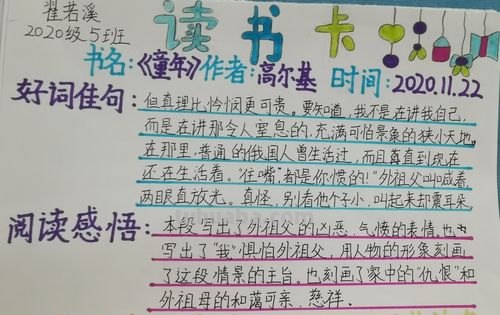 翟若溪
2020级5班
读书卡
书名:《童年》作者:高尔基 时间:2020.11.22
好词佳句:但真理比怜悯更可贵。要知道,我不是在讲我自己,
而是在讲那令人窒息的,充满可怕景象的狭小天地。
在那里,普通的俄国人曾生活过,而且直到现在
还在生活着。"住嘴,都是你惯的!"外祖父叫喊着,
两眼直放光。真怪,别看他个子小,叫起来却震耳朵
阅读感悟:本段写出了外祖父的凶恶,气愤的表情,也
写出了"我"惧怕外祖父,用人物的形象刻画
了这段情景的主旨。也刻画了家中的"仇恨"和
外祖母的和蔼可亲,慈祥.